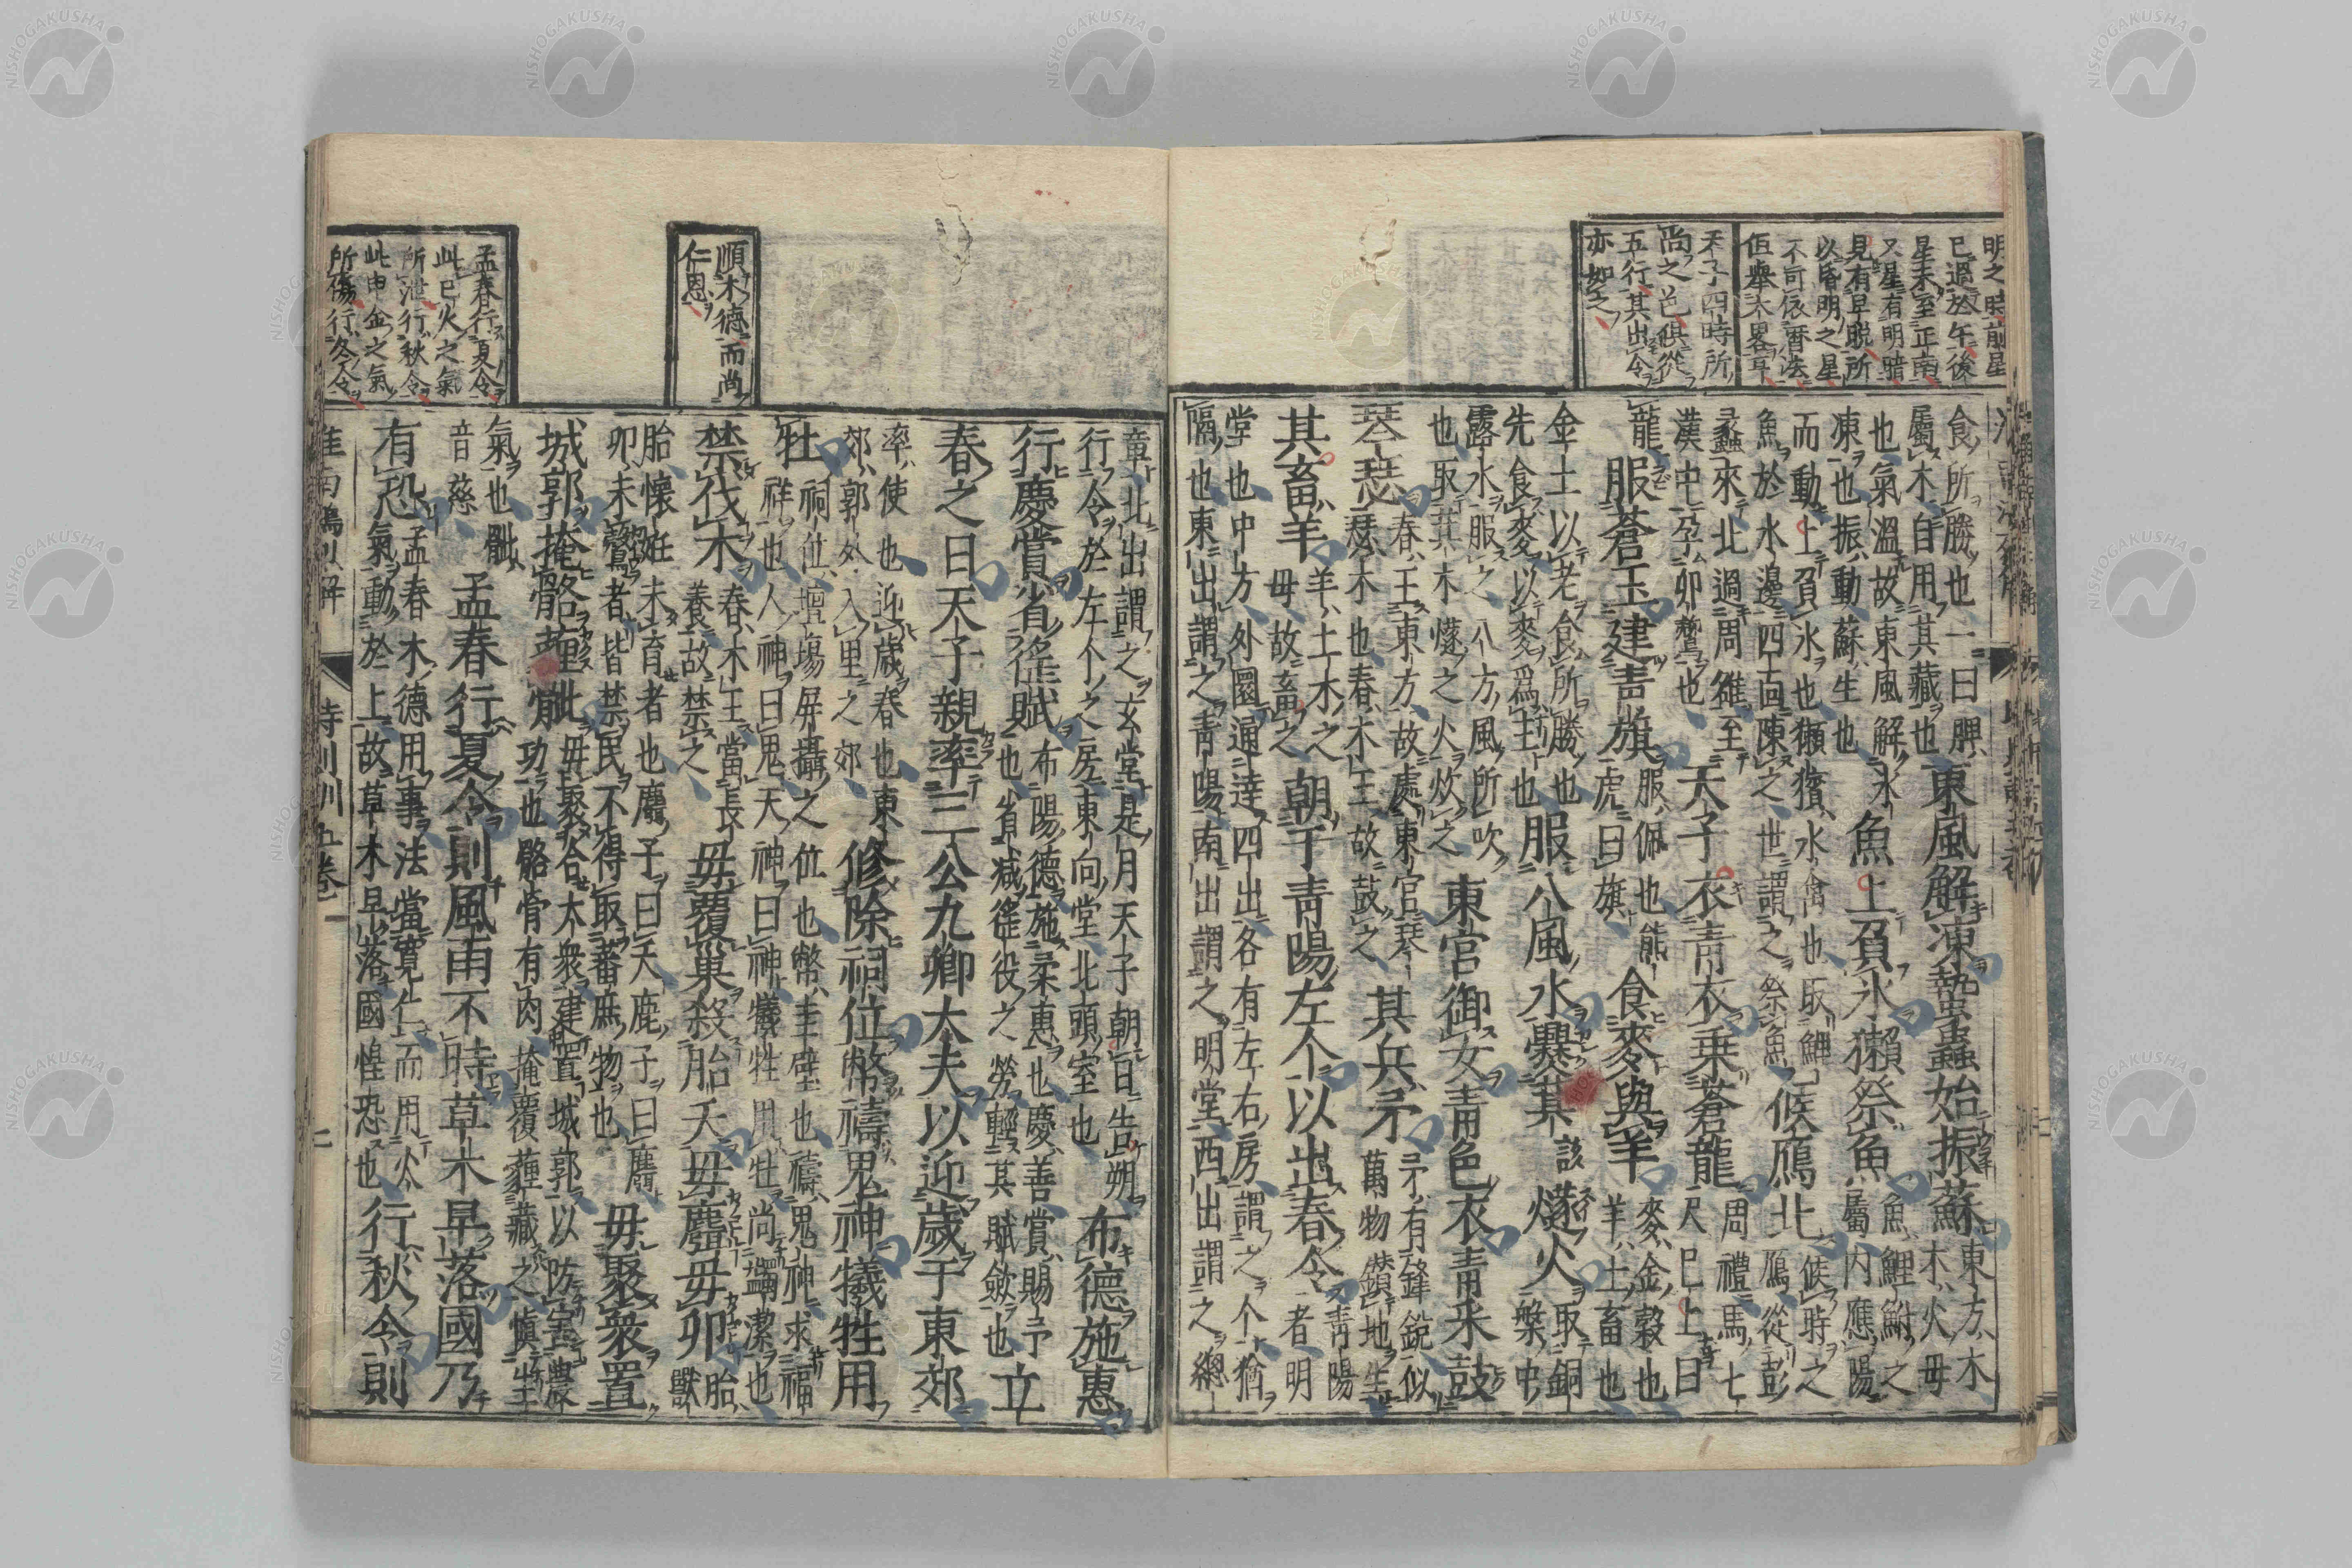 明之時前星
已過於午後
星未至正南
又星有明暗
見有早晩所
以昏明之星
不可依曆法
但擧大畧耳
天子四時所
尚之色倶從
五行其出令
亦如之
食所勝也一曰脾
屬木自用其藏也
東風解凍蟄蟲始振蘇
東方木
木火母
也氣溫故東風解氷
凍也振動蘇生也
魚上負氷獺祭魚
魚鯉鮒之
屬内應陽
而動上負氷也獺獱水禽也取鯉
魚於水邊四面陳之世謂之祭魚
候鴈北
候時之
鴈從彭
蠡來北過周雒至
漢中孕卵鷇也
天子衣靑衣乘蒼龍
周禮馬七
尺已上曰
龍
服蒼玉建靑旗
服佩也熊
虎曰旗
食麥與羊
麥金穀也
羊土畜也
金土以老食所勝也
先食麥以麥爲主也
服八風水爨萁
該
燧火
取銅
槃中
露水服之八方風所吹
也取萁木燧之火炊之
東宮御女靑色衣靑采鼓
琴瑟
春王東方故處東宮琴
瑟木也春木王故鼓之
其兵矛
矛有鋒銳似
萬物鑽地生
其畜羊
羊土木之
母故畜之
朝于靑陽左个以出春令
靑陽
者明
堂也中方外圜通達四出各有左右房謂之个猶
隔也東出謂之靑陽南出謂之明堂西出謂之總
順木德而尚
仁恩
孟春行夏令
此巳火之氣
所泄行秋令
此申金之氣
所傷行冬令
章北出謂之玄堂是月天子朝日告朔
行令於左个之房東向堂北頭室也
布德施惠
行慶賞省徭賦
布陽德施柔惠也慶善賞賜予
也省減徭役之勞輕其賦斂也
立
春之日天子親率三公九卿大夫以迎歲于東郊
率使也迎歲春也東
郊郭外入里之郊
修除祠位幣禱鬼神犧牲用
牡
祠位壇場屏攝之位也幣圭璧也禱鬼神求福
祥也人神曰鬼天神曰神犧牲用牡尚蠲潔也
禁伐木
春木王當長
養故禁之
毋覆巢殺胎夭毋麛毋卵
胎獸
胎懷姙未育者也麛子曰夭鹿子曰麛
卵未鷇者皆禁民不得取蕃庶物也
毋聚衆置
城郭掩骼薶骴
毋聚合大衆建置城郭以防害農
功也骼骨有肉掩覆薶藏之愼生
氣也骴
音慈
孟春行夏令則風雨不時草木早落國乃
有恐
孟春木德用事法當寬仁而用火
氣動於上故草木早落國惶恐也
行秋令則
淮南鴻烈解
時則訓五卷
二